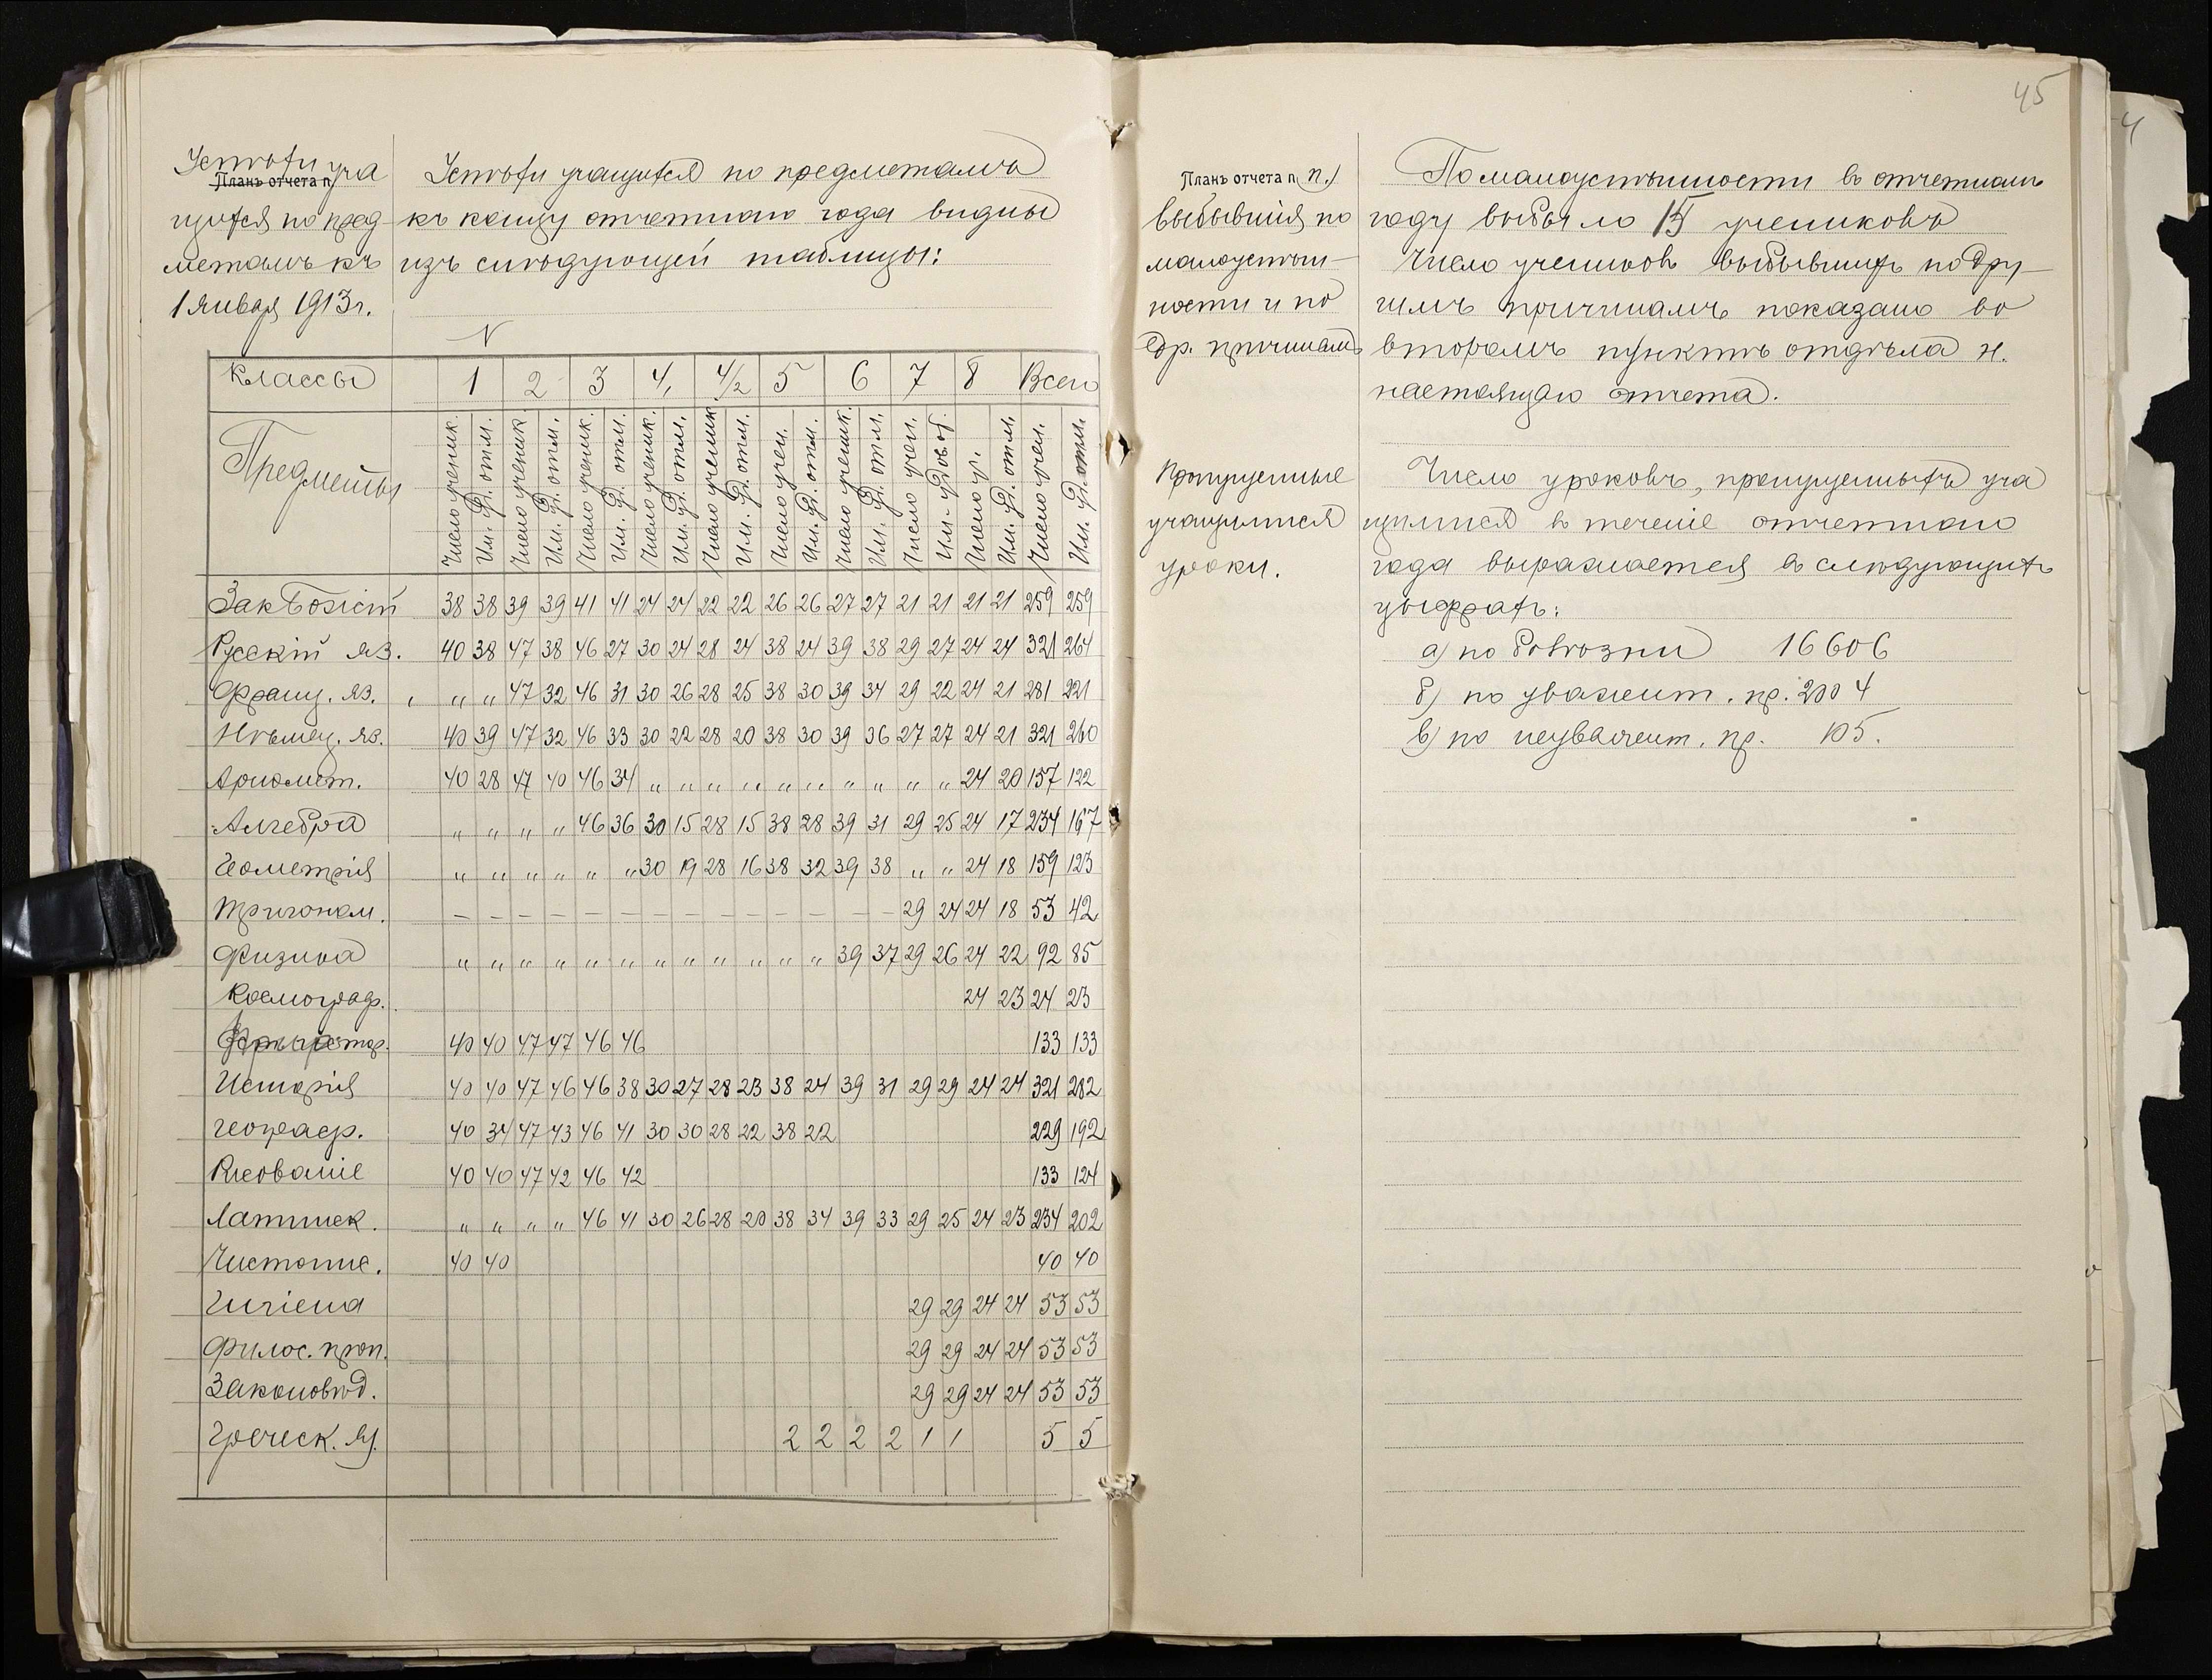 Успѣхи уча
Планъ отчета п
щихся по пред
метамъ къ
1 Января 1913 г.
Успѣхи учащихся по предметамъ
къ концу отчетнаго года видны
изъ слѣдующей таблицы:
Классы 1 2 3 4/1 4/2 5 6 7 8 Всего
Предметы Число ученик. Им. уд. отм. Число ученик. Им. уд. отм. Число ученик. Им. уд. отм. Число ученик. Им. уд. отм. Число ученик Им. уд. отм. Число учен. Им. уд. отм. Число ученик. Им. уд. отм. Число учен. Им. удов. Число уч. Им. уд. отм. Число учен. Им. уд. отм.
Зак. Божій 38 38 39 39 41 41 24 24 22 22 26 26 27 27 21 21 21 21 259 259
Русскій яз. 40 38 47 38 46 27 30 24 28 24 38 24 39 38 29 27 24 24 321 264
Франц. яз. „ „ 47 32 46 31 30 26 28 25 38 30 39 34 29 22 24 21 281 221
Нѣмец. яз. 40 39 47 32 46 33 30 22 28 20 38 30 39 36 27 27 24 21 321 260
Ариѳмет. 40 28 47 40 46 34 „ „ „ „ „ „ „ „ „ „ 24 20 157 122
Алгебра „ „ „ „ 46 36 30 15 28 15 38 28 39 31 29 25 24 17 234 167
Геометрія „ „ „ „ „ „ 30 19 28 16 38 32 39 38 „ „ 24 18 159 123
Тригоном. – – – – – – – – – – – – – – 29 24 24 18 53 42
Физика „ „ „ „ „ „ „ „ „ „ „ „ 39 37 29 26 24 22 92 85
Космограф. 24 23 24 23
40 40 47 47 46 46 133 133
Исторія 40 40 47 46 46 38 30 27 28 23 38 24 39 31 29 29 24 24 321 282
Географ. 40 34 47 43 46 41 30 30 28 22 38 22 229 192
Рисованіе 40 40 47 42 46 42 133 124
Латинск. „ „ „ „ 46 41 30 26 28 20 38 34 39 33 29 25 24 23 234 202
Чистопис. 40 40 40 40
Гигіена 29 29 24 24 53 53
Филос. проп. 29 29 24 24 53 53
Законовѣд. 29 29 24 24 53 53
Греческ. яз. 2 2 2 2 1 1 5 5
45
Планъ отчета п. п.)
выбывшія по
малоуспѣш-
ности и по
др. причинамъ
По малоуспѣшности въ отчетномъ
году выбыло 15 учениковъ
Число учениковъ выбывшихъ по дру-
гимъ причинамъ показано во
второмъ пунктѣ отдѣла н.
настоящаго отчета.
Пропущенные
учащимися
уроки.
Число уроковъ, пропущенныхъ уча
щимися въ теченіе отчетнаго
года выражается въ слѣдующихъ
цыфрахъ:
а) по болѣзни 16606
б) по уважит. пр. 2004
в) по неуважит. пр. 105.